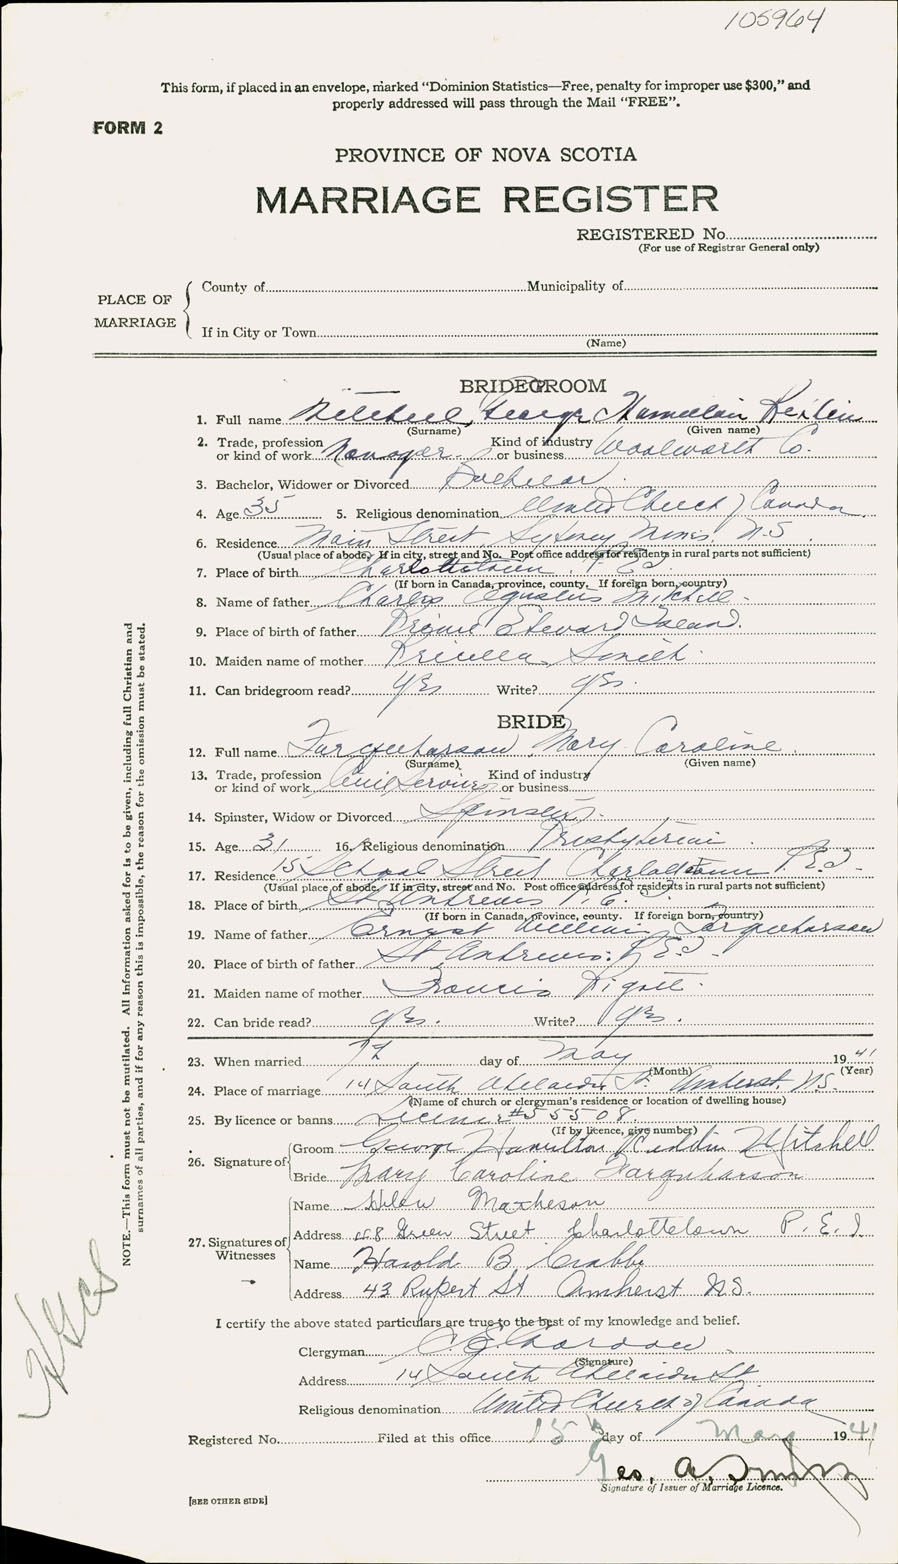 105964
This form, if placed in an envelope, marked "Dominion Statistics—Free, penalty for improper use $300," and
properly addressed will pass through the Mail "FREE".
FORM 2
PROVINCE OF NOVA SCOTIA
MARRIAGE REGISTER
REGISTERED No.
(For use of Registrar General only)
PLACE OF MARRIAGE
County of Municipality of
If in City or Town
(Name)
BRIDEGROOM
1. Full name Mitchell, George
(Surname) (Given name)
2. Trade, profession or kind of work Manager Kind of industry or business Woolworth Co.
3. Bachelor, Widower or Divorced Bachelor
4. Age 35 5. Religious denomination United Church of Canada
6. Residence Main Street Sydney Mines N.S
(Usual place of abode. If in city, street and No. Post office address for residents in rural parts not sufficient)
7. Place of birth Charlottetown P.E.I
(If born in Canada, province, county. If foreign born, country)
8. Name of father Charles Mitchell
9. Place of birth of father Prince Edward Island.
10. Maiden name of mother Smith
11. Can bridegroom read? yes Write? yes
BRIDE
12. Full name Farquharson Mary Caroline
(Surname) (Given name)
13. Trade, profession or kind of work Civil Service Kind of industry or business
14. Spinster, Widow or Divorced Spinster
15. Age 31 16. Religious denomination Presbyterian
17. Residence 15 School Street Charlottetown P.E.I
(Usual place of abode. If in city, street and No. Post office address for residents in rural parts not sufficient)
18. Place of birth St Andrews P.E.I.
(If born in Canada, province, county. If foreign born, country)
19. Name of father Ernest William Farquharson
20. Place of birth of father St Andrews P.E.I
21. Maiden name of mother Francis
22. Can bride read? yes. Write? yes.
23. When married 7th day of May 1941
(Month) (Year)
24. Place of marriage 14 South Adelaide St. Amherst, N.S.
(Name of church or clergyman's residence or location of dwelling house)
25. By licence or banns License #55508
(If by licence, give number)
26. Signature of Groom George Hamilton Mitchell
Bride Mary Caroline Farquharson
27. Signatures of Witnesses
Name Helen Matheson
Address Green Street Charlottetown P.E.I.
Name Harold B. Crabbe
Address 43 Rupert St Amherst N.S.
I certify the above stated particulars are true to the best of my knowledge and belief.
Clergyman C. E.
(Signature)
Address 14 South Adelaide St
Religious denomination United Church of Canada
Registered No. Filed at this office 15th day of May 1941
Geo. A.
Signature of Issuer of Marriage Licence.
[SEE OTHER SIDE]
NOTE.—This form must not be mutilated. All information asked for is to be given, including full Christian and
surnames of all parties, and if for any reason this is impossible, the reason for the omission must be stated.